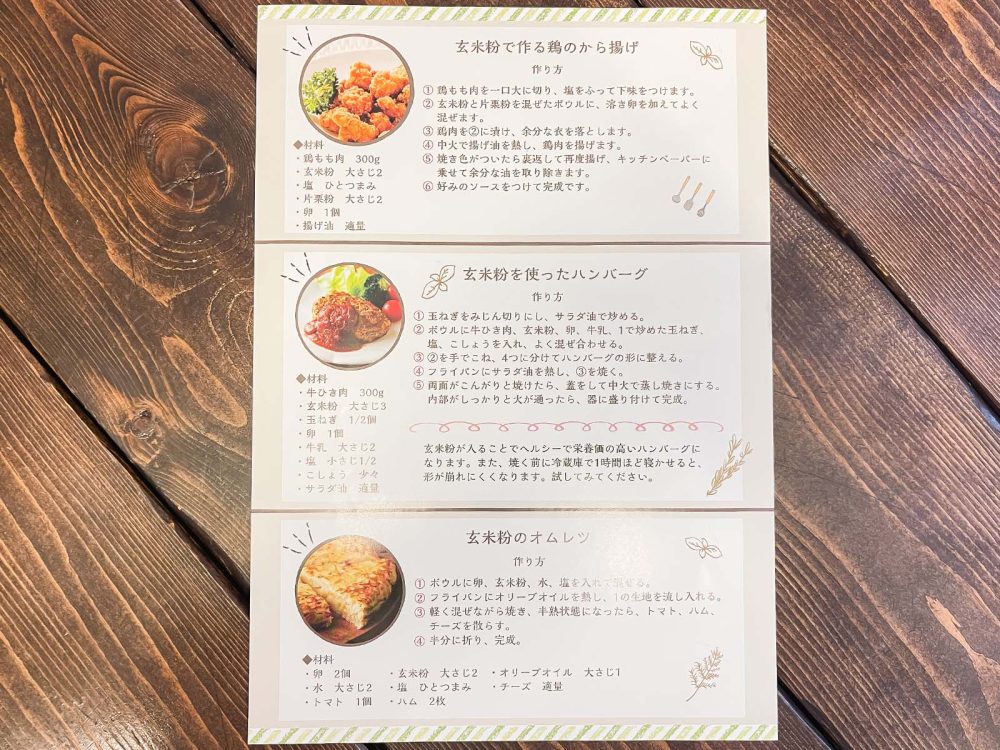 玄米粉で作る鶏のから揚げ
作り方
① 鶏もも肉を一口大に切り、塩をふって下味をつけます。
② 玄米粉と片栗粉を混ぜたボウルに、溶き卵を加えてよく
混ぜます。
③ 鶏肉を②に漬け、余分な衣を落とします。
④ 中火で揚げ油を熱し、鶏肉を揚げます。
⑤ 焼き色がついたら裏返して再度揚げ、キッチンペーパーに
乗せて余分な油を取り除きます。
⑥ 好みのソースをつけて完成です。
◆材料
・鶏もも肉 300g
・玄米粉 大さじ2
・塩 ひとつまみ
・片栗粉 大さじ2
・卵 1個
・揚げ油 適量
玄米粉を使ったハンバーグ
作り方
① 玉ねぎをみじん切りにし、サラダ油で炒める。
② ボウルに牛ひき肉、玄米粉、卵、牛乳、1で炒めた玉ねぎ、
塩、こしょうを入れ、よく混ぜ合わせる。
③ ②を手でこね、4つに分けてハンバーグの形に整える。
④ フライパンにサラダ油を熱し、③を焼く。
⑤ 両面がこんがりと焼けたら、蓋をして中火で蒸し焼きにする。
内部がしっかりと火が通ったら、器に盛り付けて完成。
◆材料
・牛ひき肉 300g
・玄米粉 大さじ3
・玉ねぎ 1/2個
・卵 1個
・牛乳 大さじ2
・塩 小さじ1/2
・こしょう 少々
・サラダ油 適量
玄米粉が入ることでヘルシーで栄養価の高いハンバーグに
なります。また、焼く前に冷蔵庫で1時間ほど寝かせると、
形が崩れにくくなります。試してみてください。
玄米粉のオムレツ
作り方
① ボウルに卵、玄米粉、水、塩を入れて混ぜる。
② フライパンにオリーブオイルを熱し、1の生地を流し入れる。
③ 軽く混ぜながら焼き、半熟状態になったら、トマト、ハム、
チーズを散らす。
④ 半分に折り、完成。
◆材料
・卵 2個 ・玄米粉 大さじ2 ・オリーブオイル 大さじ1
・水 大さじ2 ・塩 ひとつまみ ・チーズ 適量
・トマト 1個 ・ハム 2枚